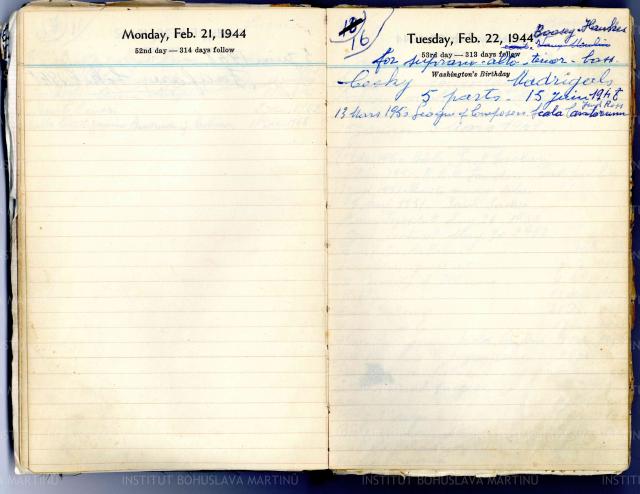 Monday, Feb. 21, 1944
52nd day — 314 days follow
16
Boosey Hawkes
Tuesday, Feb. 22, 1944
53rd day — 313 days follow
for soprano - alto - tenor - bass.
Washington's Birthday
Czesky Madrigals
5 parts - 15 juin 1948
13 Mars 1953 League of Composers Scola Cantorum
Hugh Ross
INSTITUT BOHUSLAVA MARTINŮ
INSTITUT BOHUSLAVA MARTINŮ